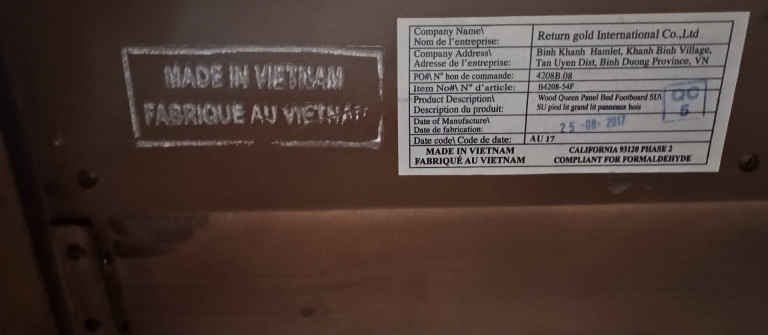 MADE IN VIETNAM
FABRIQUE AU VIETNAM
Company Name\ Return gold International Co.,Ltd
Nom de l'entreprise:
Company Address\ Binh Khanh Hamlet, Khanh Binh Village,
Adresse de l'entreprise: Tan Uyen Dist, Binh Duong Province, VN
PO#\ N° bon de commande: 4208B.08
Item No#\ N° d'article: B4208-54F
Product Description\ Wood Queen Panel Bed Footboard
Description du produit: 5U pied lit grand lit panneaux bois
QC
5
Date of Manufacture\
Date de fabrication: 25-08-2017
Date code\ Code de date: AU 17
MADE IN VIETNAM CALIFORNIA 93120 PHASE 2
FABRIQUÉ AU VIETNAM COMPLIANT FOR FORMALDEHYDE